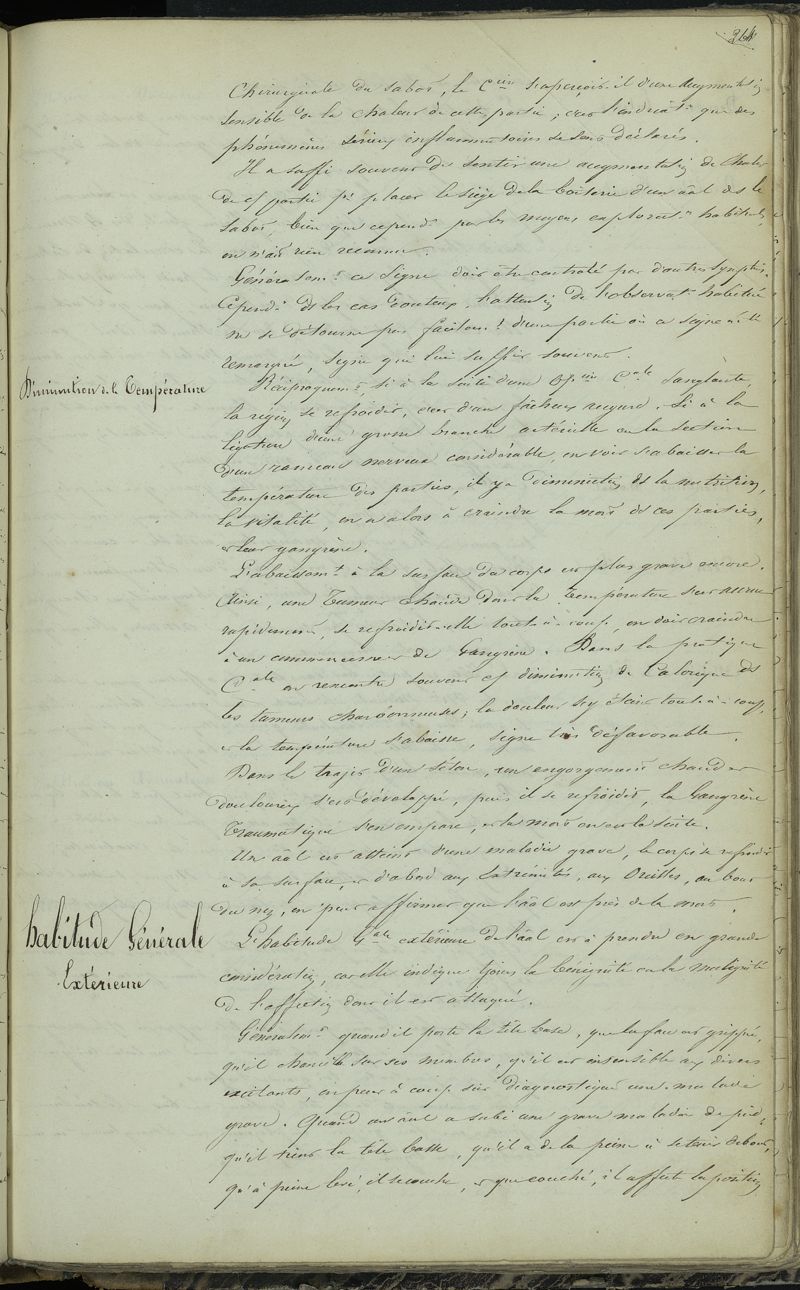 264
Chirurgicale du sabot, le C^ien s'aperçoit-il d'une augmentation
sensible de la chaleur de cette partie, c'est l'indicat^n que des
phénomènes sérieux inflammatoires se sont déclarés.
Il a suffi souvent de sentir une augmentation de chaleur
de c/ partie p^r placer le siège de la boiterie d'un aâl ds le
sabot, bien que cepend^t par les moyens explorat^rs habituels,
on n'ait rien reconnu.
Généralem^t ce signe doit être contrôlé par d'autres symptôm.
Cepend^t ds les cas douteux, l'attention de l'observat^r habitué
ne se détourne pas facilem^t d'une partie où ce signe a été
remarqué, signe qui lui suffit souvent.
Diminution de la Température
Réciproquem^t, si à la suite d'une Op^on C^ale sanglante,
la région se refroidit, c'est d'un fâcheux augure. Si à la
ligature d'une grosse branche artérielle ou la section
d'un rameau nerveux considérable, on voit s'abaisser la
température des parties, il y a diminution ds la nutrition,
la vitalité, on a alors à craindre la mort de ces parties,
et leur gangrène.
L'abaissem^t à la surface du corps est plus grave encore.
Ainsi, une tumeur chaude dont la température s'est accrue
rapidement, se refroidit-elle tout-à-coup, on doit craindre
à un commencement de Gangrène. Dans la pratique
C^ale on rencontre souvent c/ diminution de Calorique ds
les tumeurs charbonneuses; la douleur s'y éteint tout-à-coup,
et la température s'abaisse, signe très défavorable.
Dans le trajet d'un Séton, un engorgement chaud et
douloureux s'est développé, puis il se refroidit, la Gangrène
Traumatique s'en empare, et la mort en est la suite.
Un aâl est atteint d'une maladie grave, le corps se refroidit
à sa surface, et d'abord aux Extrémités, aux Oreilles, au bout
du nez, on peut affirmer que l'aâl est près de la mort.
habitude Générale
Extérieure
L'habitude G^ale extérieure de l'aâl est à prendre en grande
considération, car elle indique tjours la bénignité ou la malignité
de l'affection dont il est attaqué.
Généralem^t quand il porte la tête basse, que la face est grippée,
qu'il chancelle sur ses membres, qu'il est insensible aux divers
excitants, on peut à coup sûr diagnostiquer une maladie
grave. Quand un aâl a subi une grave maladie de pied,
qu'il tient la tête basse, qu'il a de la peine à se tenir debout,
qu'à peine levé, il se couche, et que couché, il affecte la position